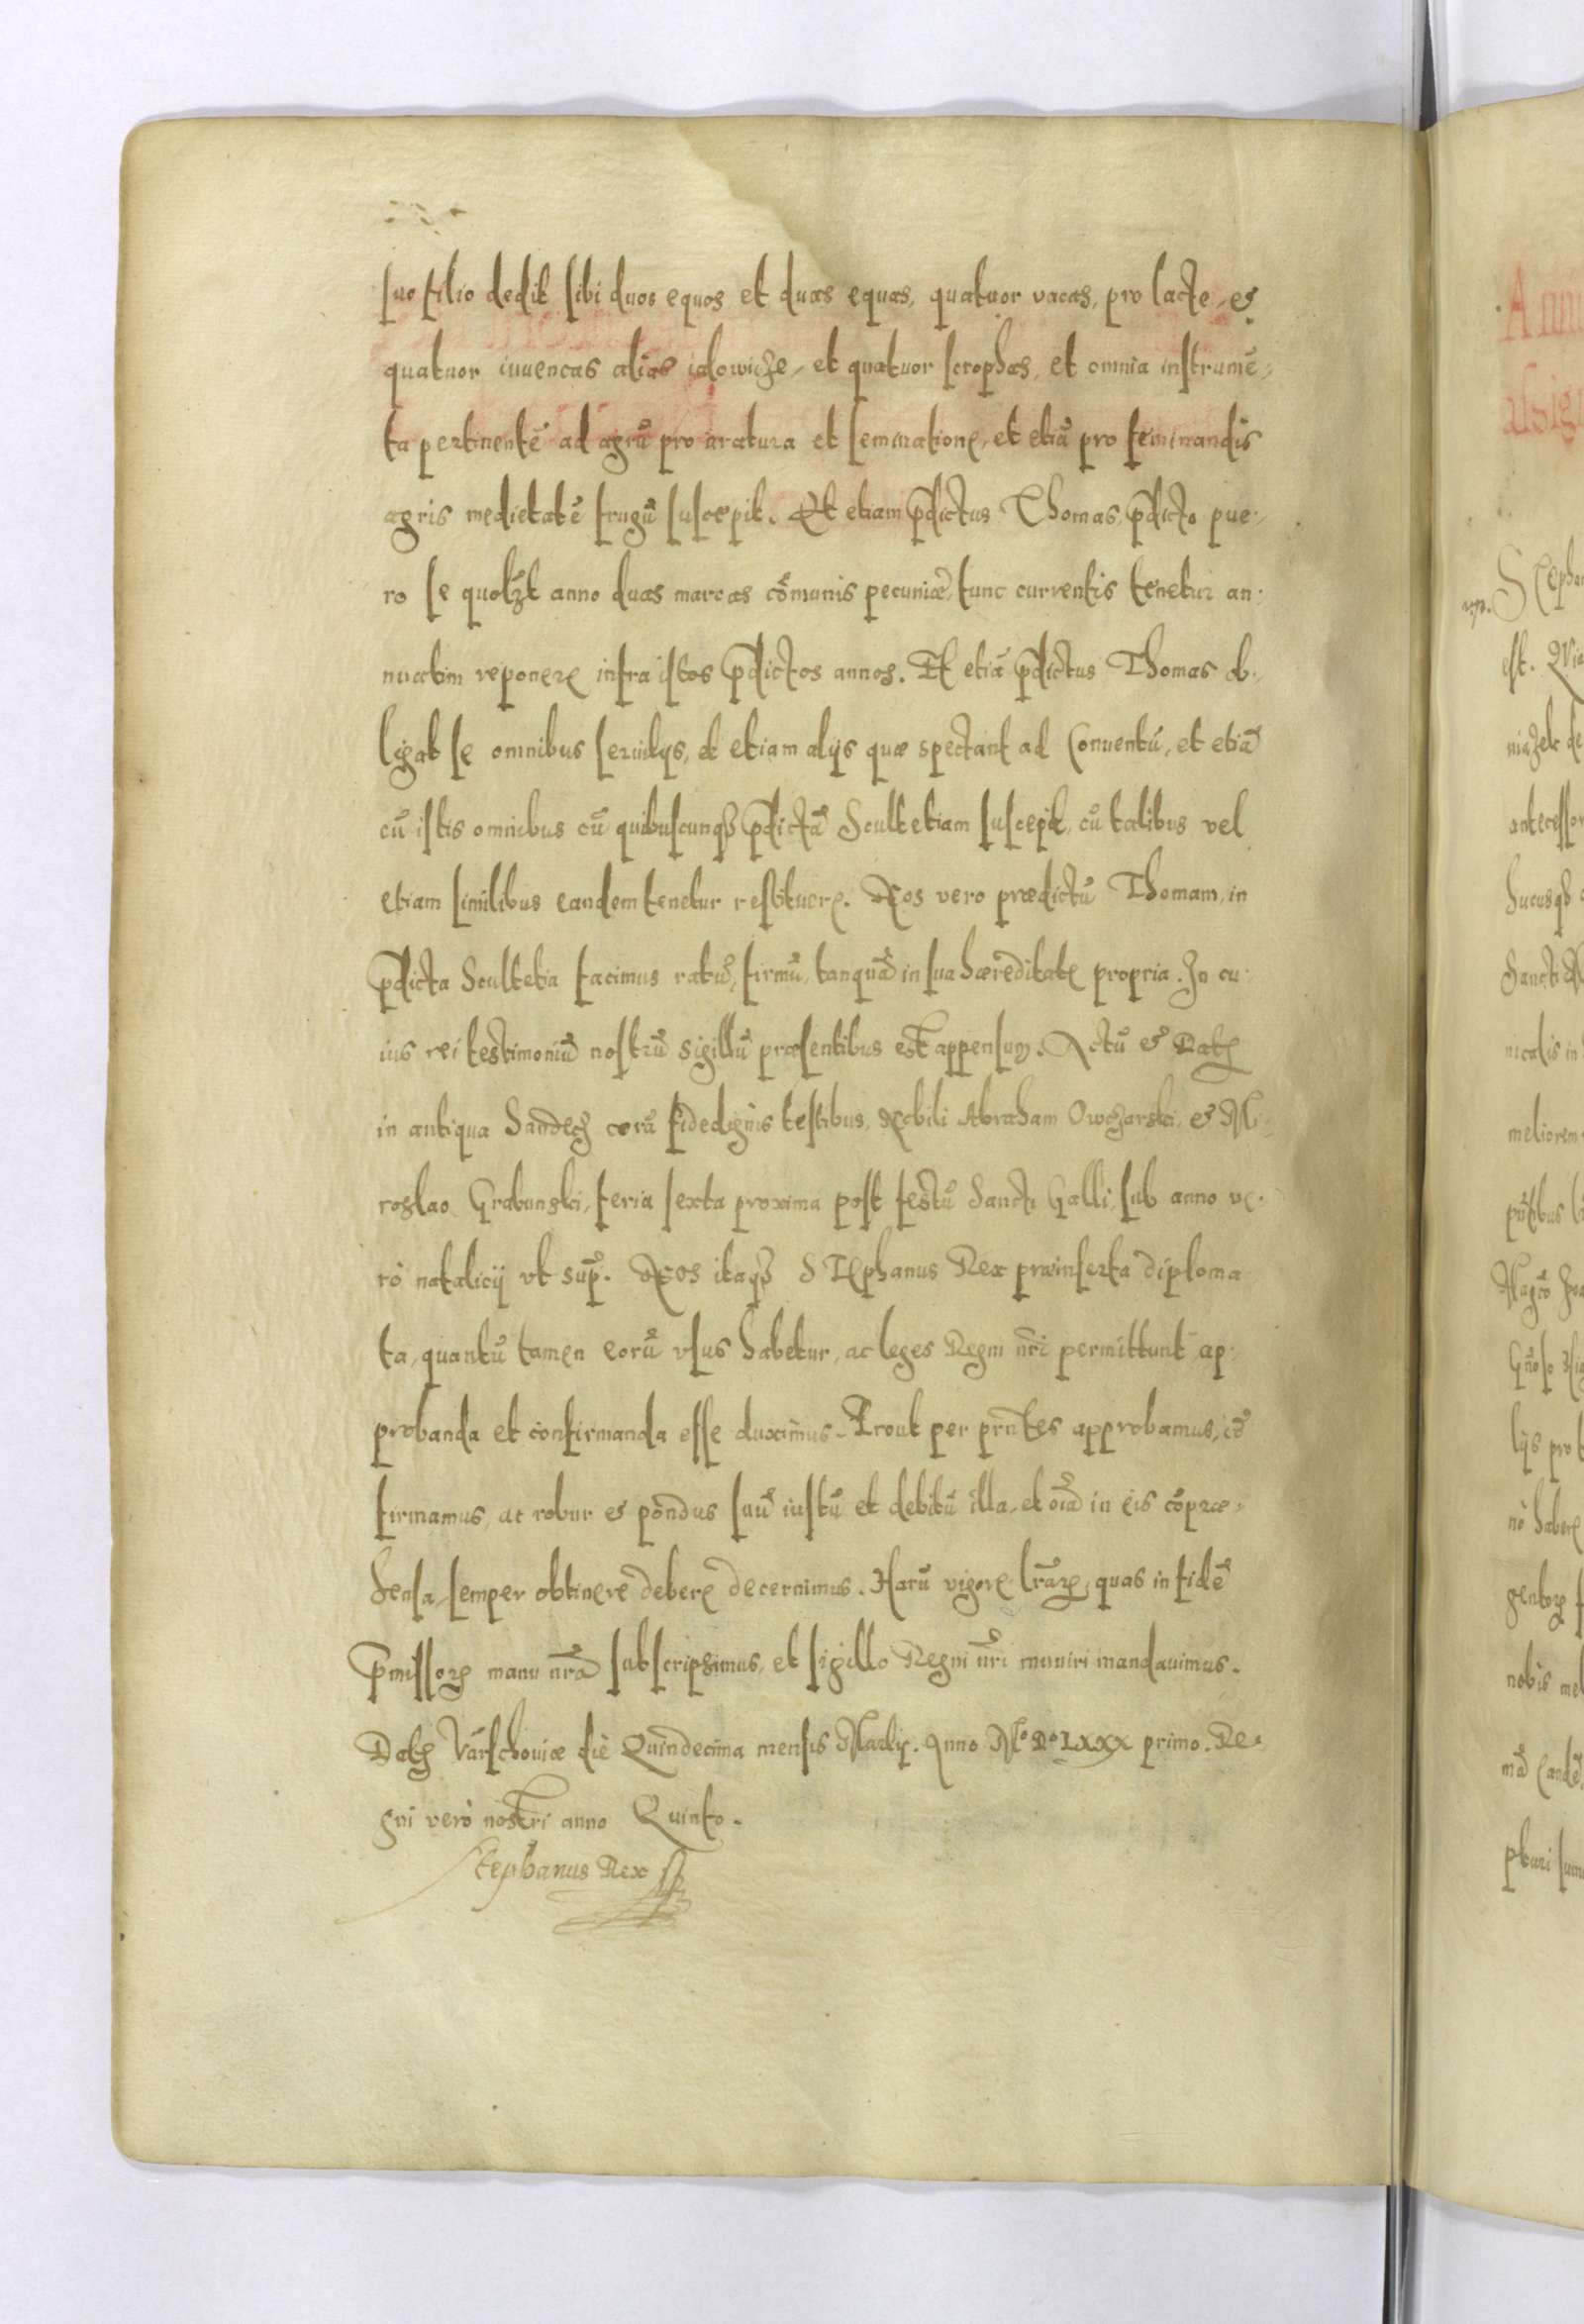 suo filio dedit sibi duos equos et duas equas, quatuor vacas, pro lacte, et
quatuor iuuencas alias ialowicze, et quatuor scrophas, et omnia instrumē-
ta pertinentē ad agrū pro aratura et seminatione, et etiā pro seminandis
agris medietatē frugū suscepit. Et etiam p̄dictus Thomas, p̄dicto pue-
ro se quolzt anno duas marcas cōmunis pecuniæ, tunc currentis tenetur an-
nuatim reponere infra istos p̄dictos annos. Et etiā p̄dictus Thomas ob-
ligat se omnibus seruitijs, et etiam alijs quæ spectant ad Conuentū, et etiā
cū istis omnibus cū quibuscunqȝ p̄dictā Scultetiam suscepit, cū talibus vel
etiam similibus eandem tenetur restituere. Nos vero prædictū Thomam, in
p̄dicta Scultetia facimus ratū, firmū, tanquā in sua hæreditate propria. In cu-
ius rei testimoniū nostrū sigillū præsentibus est appensum. Actū et Datꝫ
in antiqua Sandecz corā fidedignis testibus, Nobili Abraham Owczarski, et Mi-
roslao Grabunski, feria sexta proxima post festū Sancti Galli, sub anno ve-
rò natalicij vt sup̄. Nos itaqȝ STephanus Rex præinserta diploma-
ta, quantū tamen eorū vsus habetur, ac leges Regni nr̄i permittunt, ap-
probanda et confirmanda esse duximus. Prout per pn̄tes approbamus, cō
firmamus, ac robur et pondus suū iustū et debitū illa, et oīa in eis cōpræ-
hensa, semper obtinere debere decernimus. Harū vigore lr̄arꝫ, quas in fidē
p̄missorꝫ manu nr̄a subscripsimus, et sigillo Regni nr̄i muniri mandauimus.
Datꝫ Varschouiæ die Quindecima mensis Martij. Anno Mº Dº LXXX primo. Re-
gni verò nostri anno Quinto.
Stephanus Rex